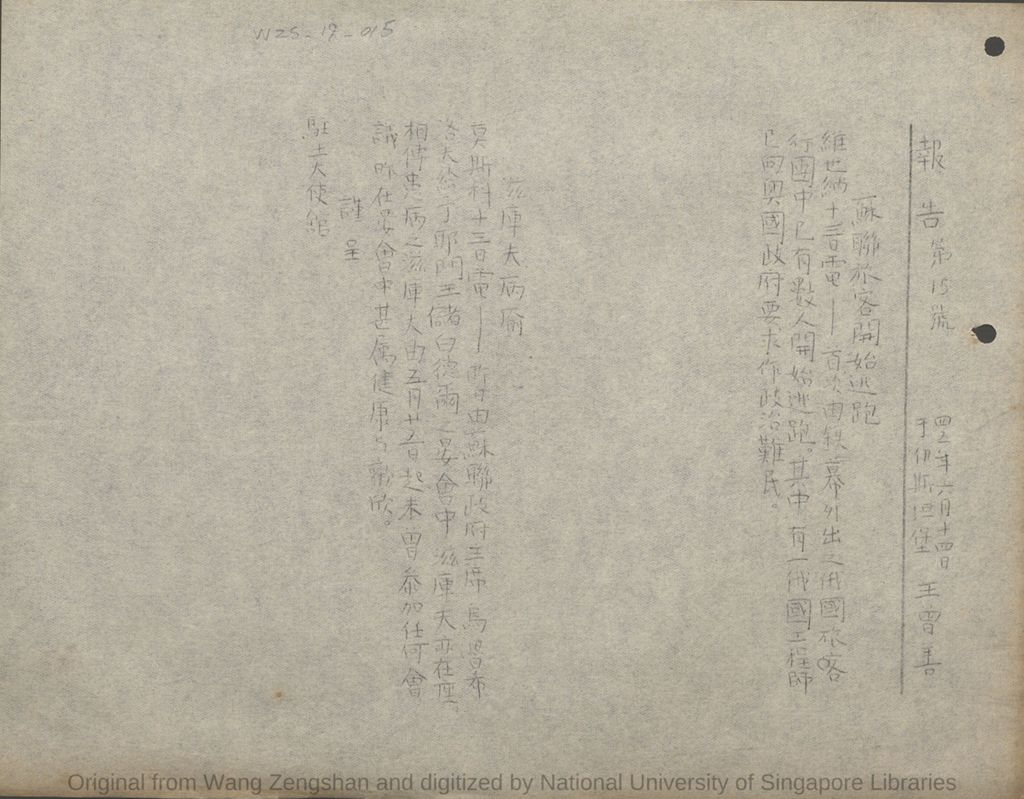 WZS-19-015
報告 第15號
四五年六月十四日
于伊斯坦堡 王曾善
蘇聯旅客開始逃跑
維也納十三日電——首次由鉄幕外出之俄國旅客
行團中已有數人開始逃跑。其中有一俄國工程師
已向奧國政府要求作政治難民。
滋庫夫病瘉
莫斯科十三日電——昨日由蘇聯政府主席馬倫布
洛夫給于耶門王儲白德爾之宴會中滋庫夫亦在座。
相傳患病之滋庫夫由五月廿五日起未曾參加任何會
議昨在宴會中甚爲健康与歡欣。
謹呈
駐土大使館
Original from Wang Zengshan and digitized by National University of Singapore Libraries